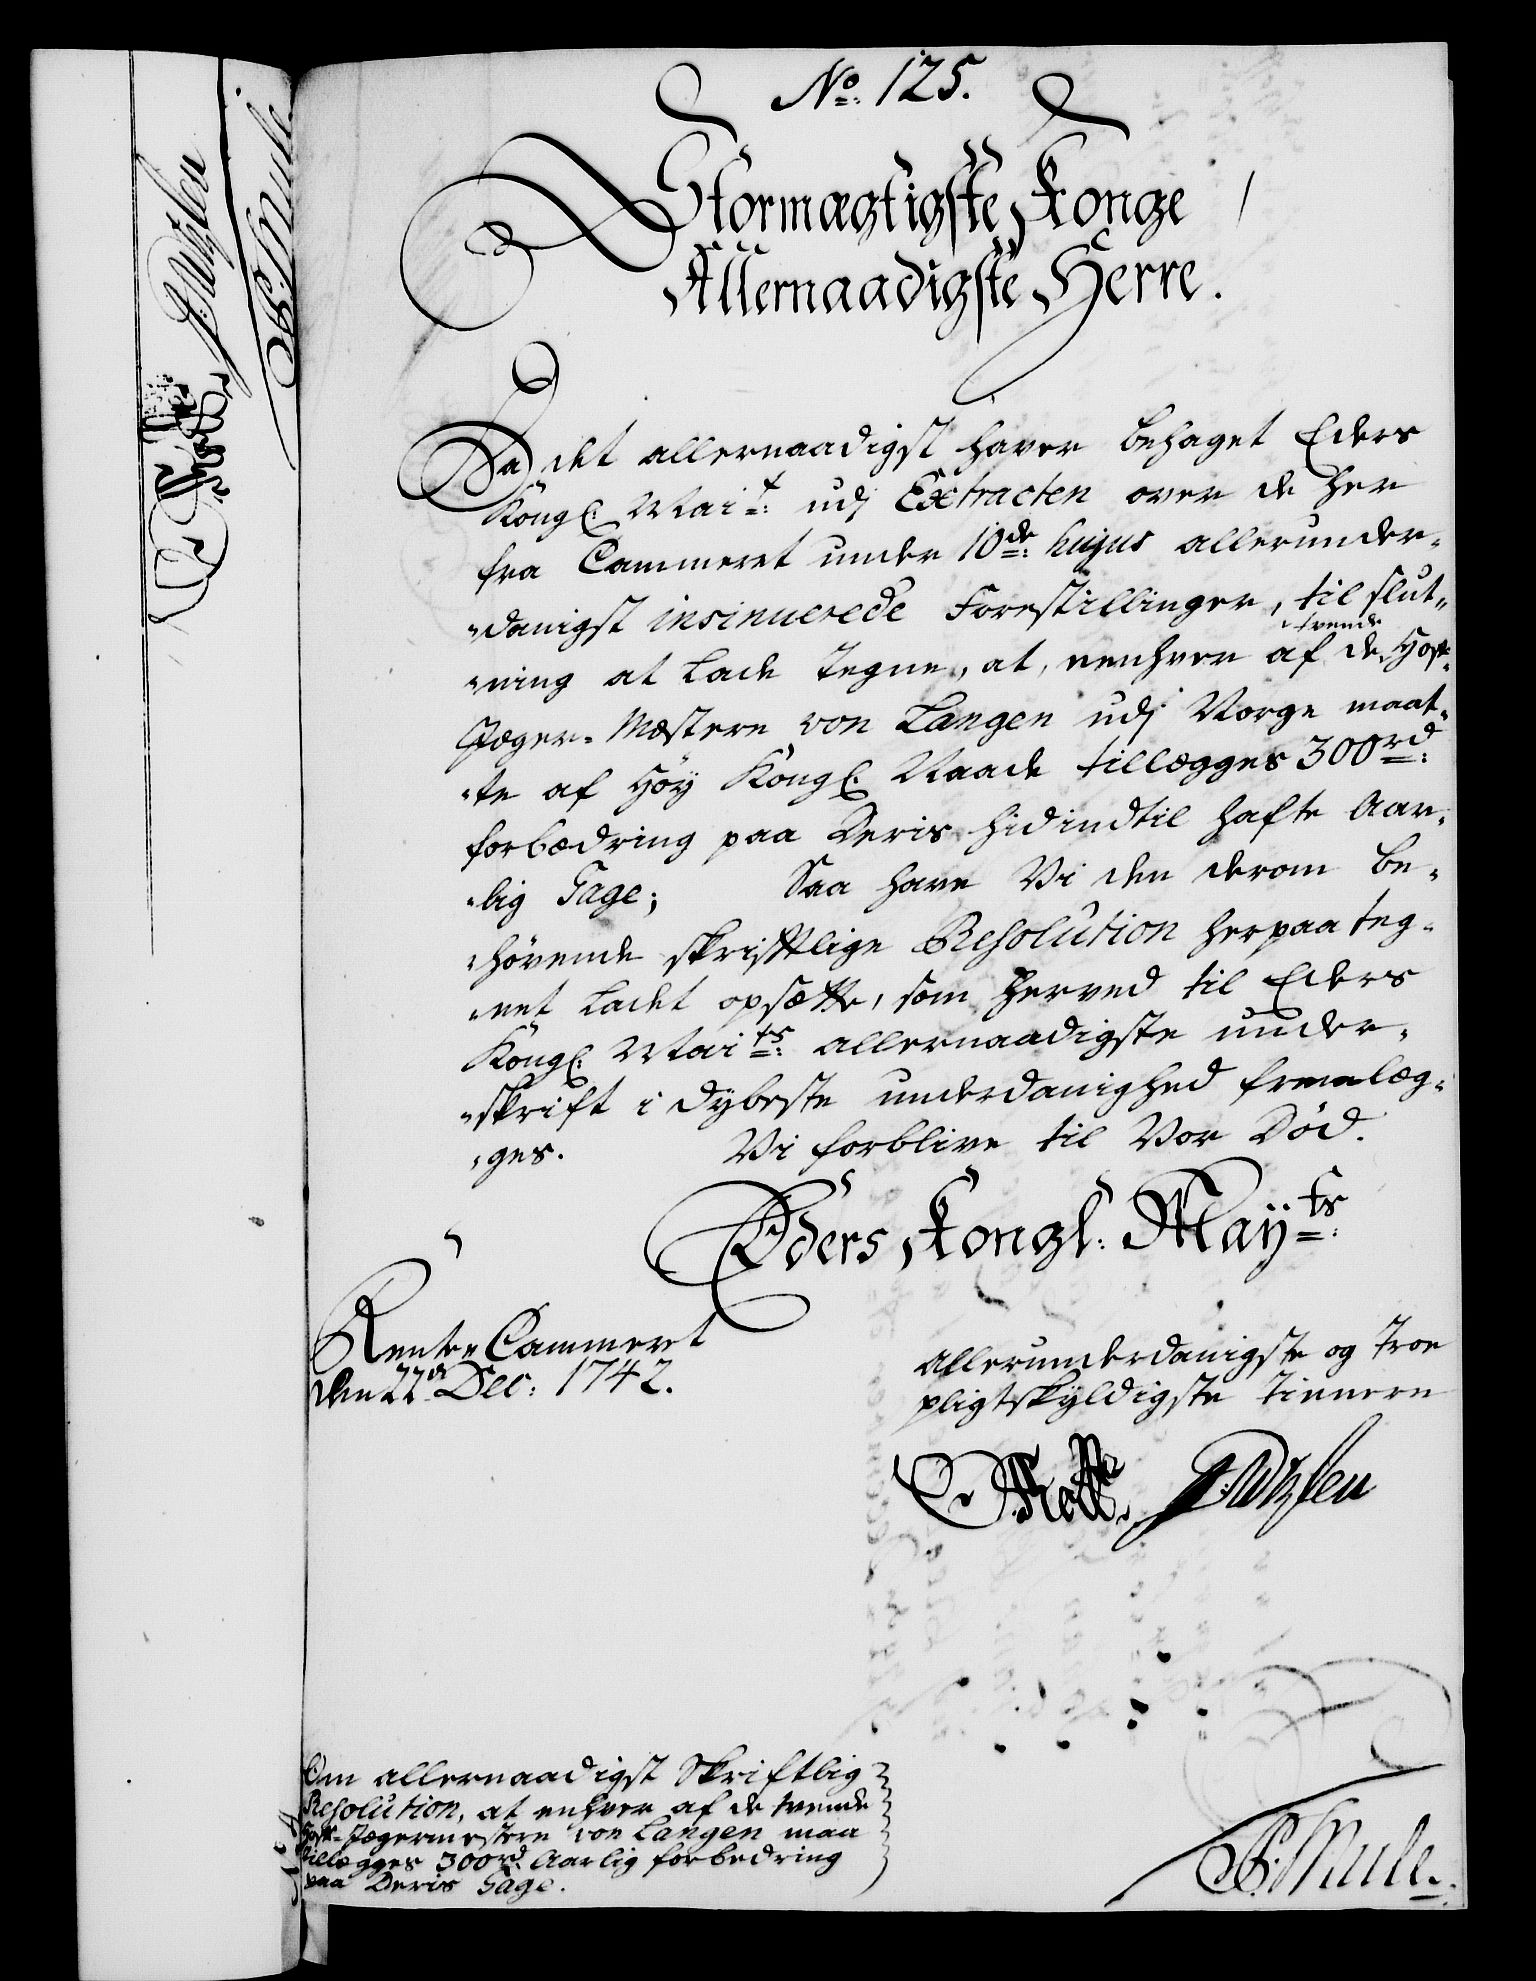 No. 125.
Stormægtigste Konge
Allernaadigste Herre.
Da det allernaadigst haver behaget Eders
Kongl: Mai.t: udj Extracten over de her
fra Cammeret under 10de: hujus allerunder-
danigst insinuerede Forestillinger, til slut-
tvende
ning at lade tegne, at, eenhver af de Hoff-
Jæger-Mestere von Langen udj Norge maat-
te af Höÿ Kongl: Naade tillægges 300rd:
forbedring paa Deris hidindtil hafte Aar-
lig Gage; Saa have Vi den derom be-
hövende skrifftlige Resolution herpaa teg-
net ladet opsætte, som herved til Eders
Kongl: Maits: allernaadigste under-
skrift i dÿbeste underdanighed fremlæg-
ges. Vi forblive til Vor Död.
Eders Kongl: Maÿts:
Rente Cammeret
den 22de Dec: 1742.
Allerunderdanigste og troe
pligtskÿldigste tienere
Om allernaadigst Skriftlig
Resolution, at enhver af de tvende
Hoff-Jægermestere von Langen maa
tillægges 300rd: Aarlig forbedring
paa Deris Gage.
Mule